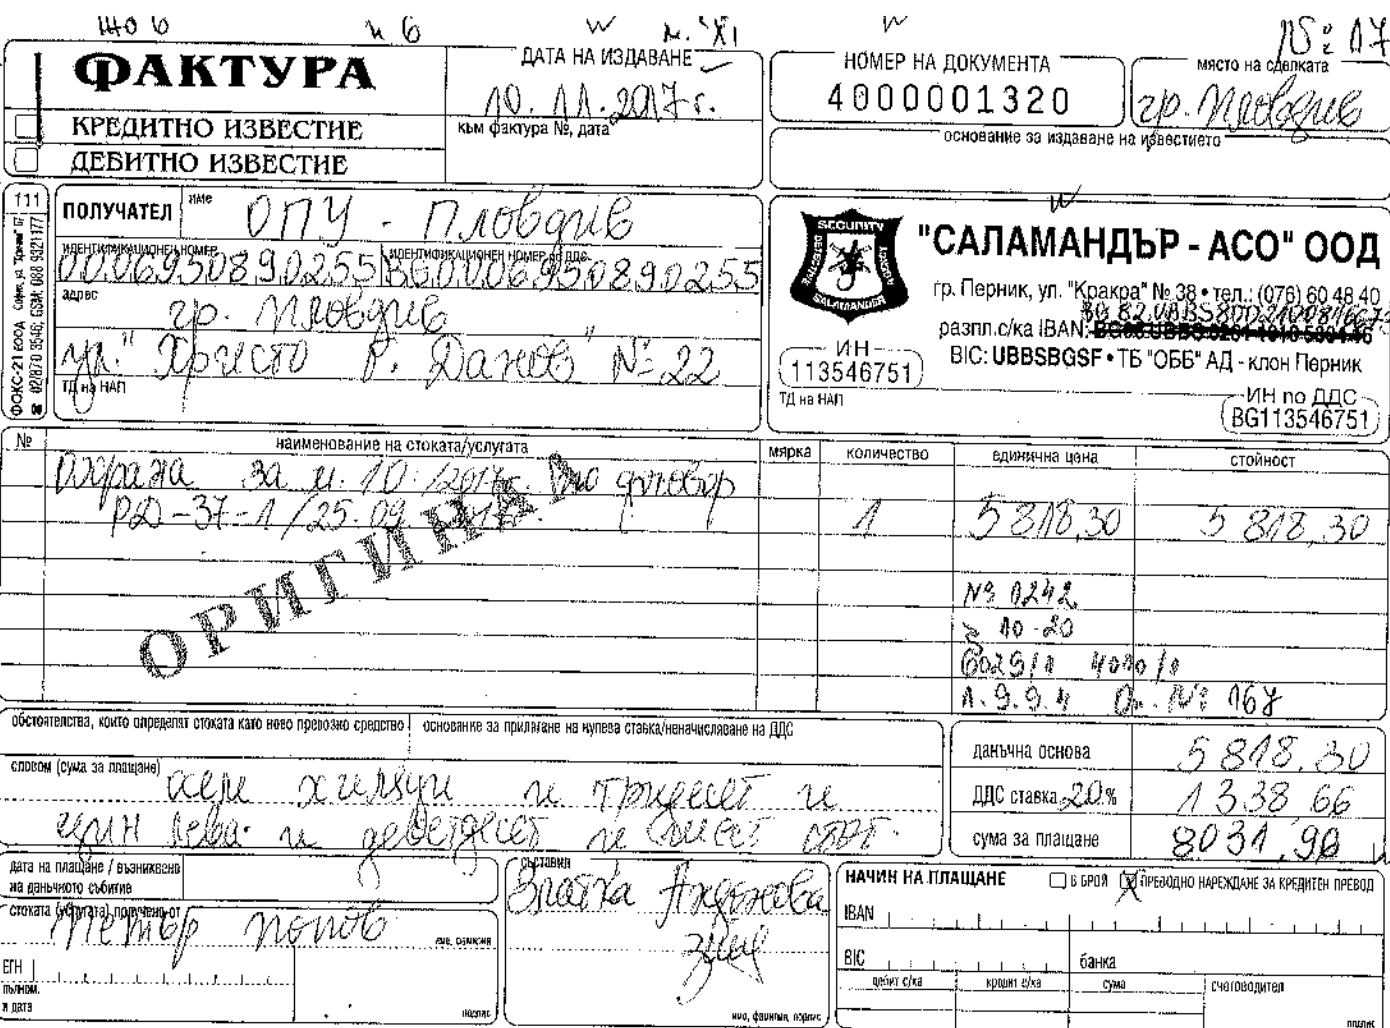 ФАКТУРА
КРЕДИТНО ИЗВЕСТИЕ
ДЕБИТНО ИЗВЕСТИЕ
ДАТА НА ИЗДАВАНЕ
10.11.2017 г.
към фактура №, дата
НОМЕР НА ДОКУМЕНТА
4000001320
място на сделката
гр. Пловдив
основание за издаване на известието
111
ФОКС-21 ЕООД
ПОЛУЧАТЕЛ
име
ОПУ - Пловдив
ИДЕНТИФИКАЦИОНЕН НОМЕР
0006950890255
ИДЕНТИФИКАЦИОНЕН НОМЕР по ДДС
BG0006950890255
адрес
гр. Пловдив
ул. "Христо Г. Данов" № 22
ТД на НАП
SECURITY
SALAMANDER
"САЛАМАНДЪР - АСО" ООД
гр. Перник, ул. "Кракра" № 38 • тел.: (076) 60 48 40
разпл.с/ка IBAN:
BIC: UBBSBGSF • ТБ "ОББ" АД - клон Перник
ИН
113546751
ТД на НАП
ИН по ДДС
BG113546751
№ наименование на стоката/услугата мярка количество единична цена стойност
Охрана за м. 10. /2017г. по договор
РД-37-1/25.09. 1 5818,30 5 818,30
ОРИГИНАЛ
№ 0242
10-20
1.9.9.4 № 167
обстоятелства, които определят стоката като ново превозно средство
основание за прилагане на нулева ставка/неначисляване на ДДС
словом (сума за плащане) осем хиляди и тридесет и
един лева и деветдесет и шест стот.
данъчна основа 5 818.30
ДДС ставка 20 % 1338 66
сума за плащане 8031.96
дата на плащане / възникване
на данъчното събитие
стоката (услугата) получена от
Петър Попов
име, фамилия
ЕГН
пълном.
и дата
подпис
съставил
Златка
име, фамилия, подпис
НАЧИН НА ПЛАЩАНЕ
В БРОЙ
ПРЕВОДНО НАРЕЖДАНЕ ЗА КРЕДИТЕН ПРЕВОД
IBAN
BIC
банка
дебит с/ка кредит с/ка сума счетоводител
подпис